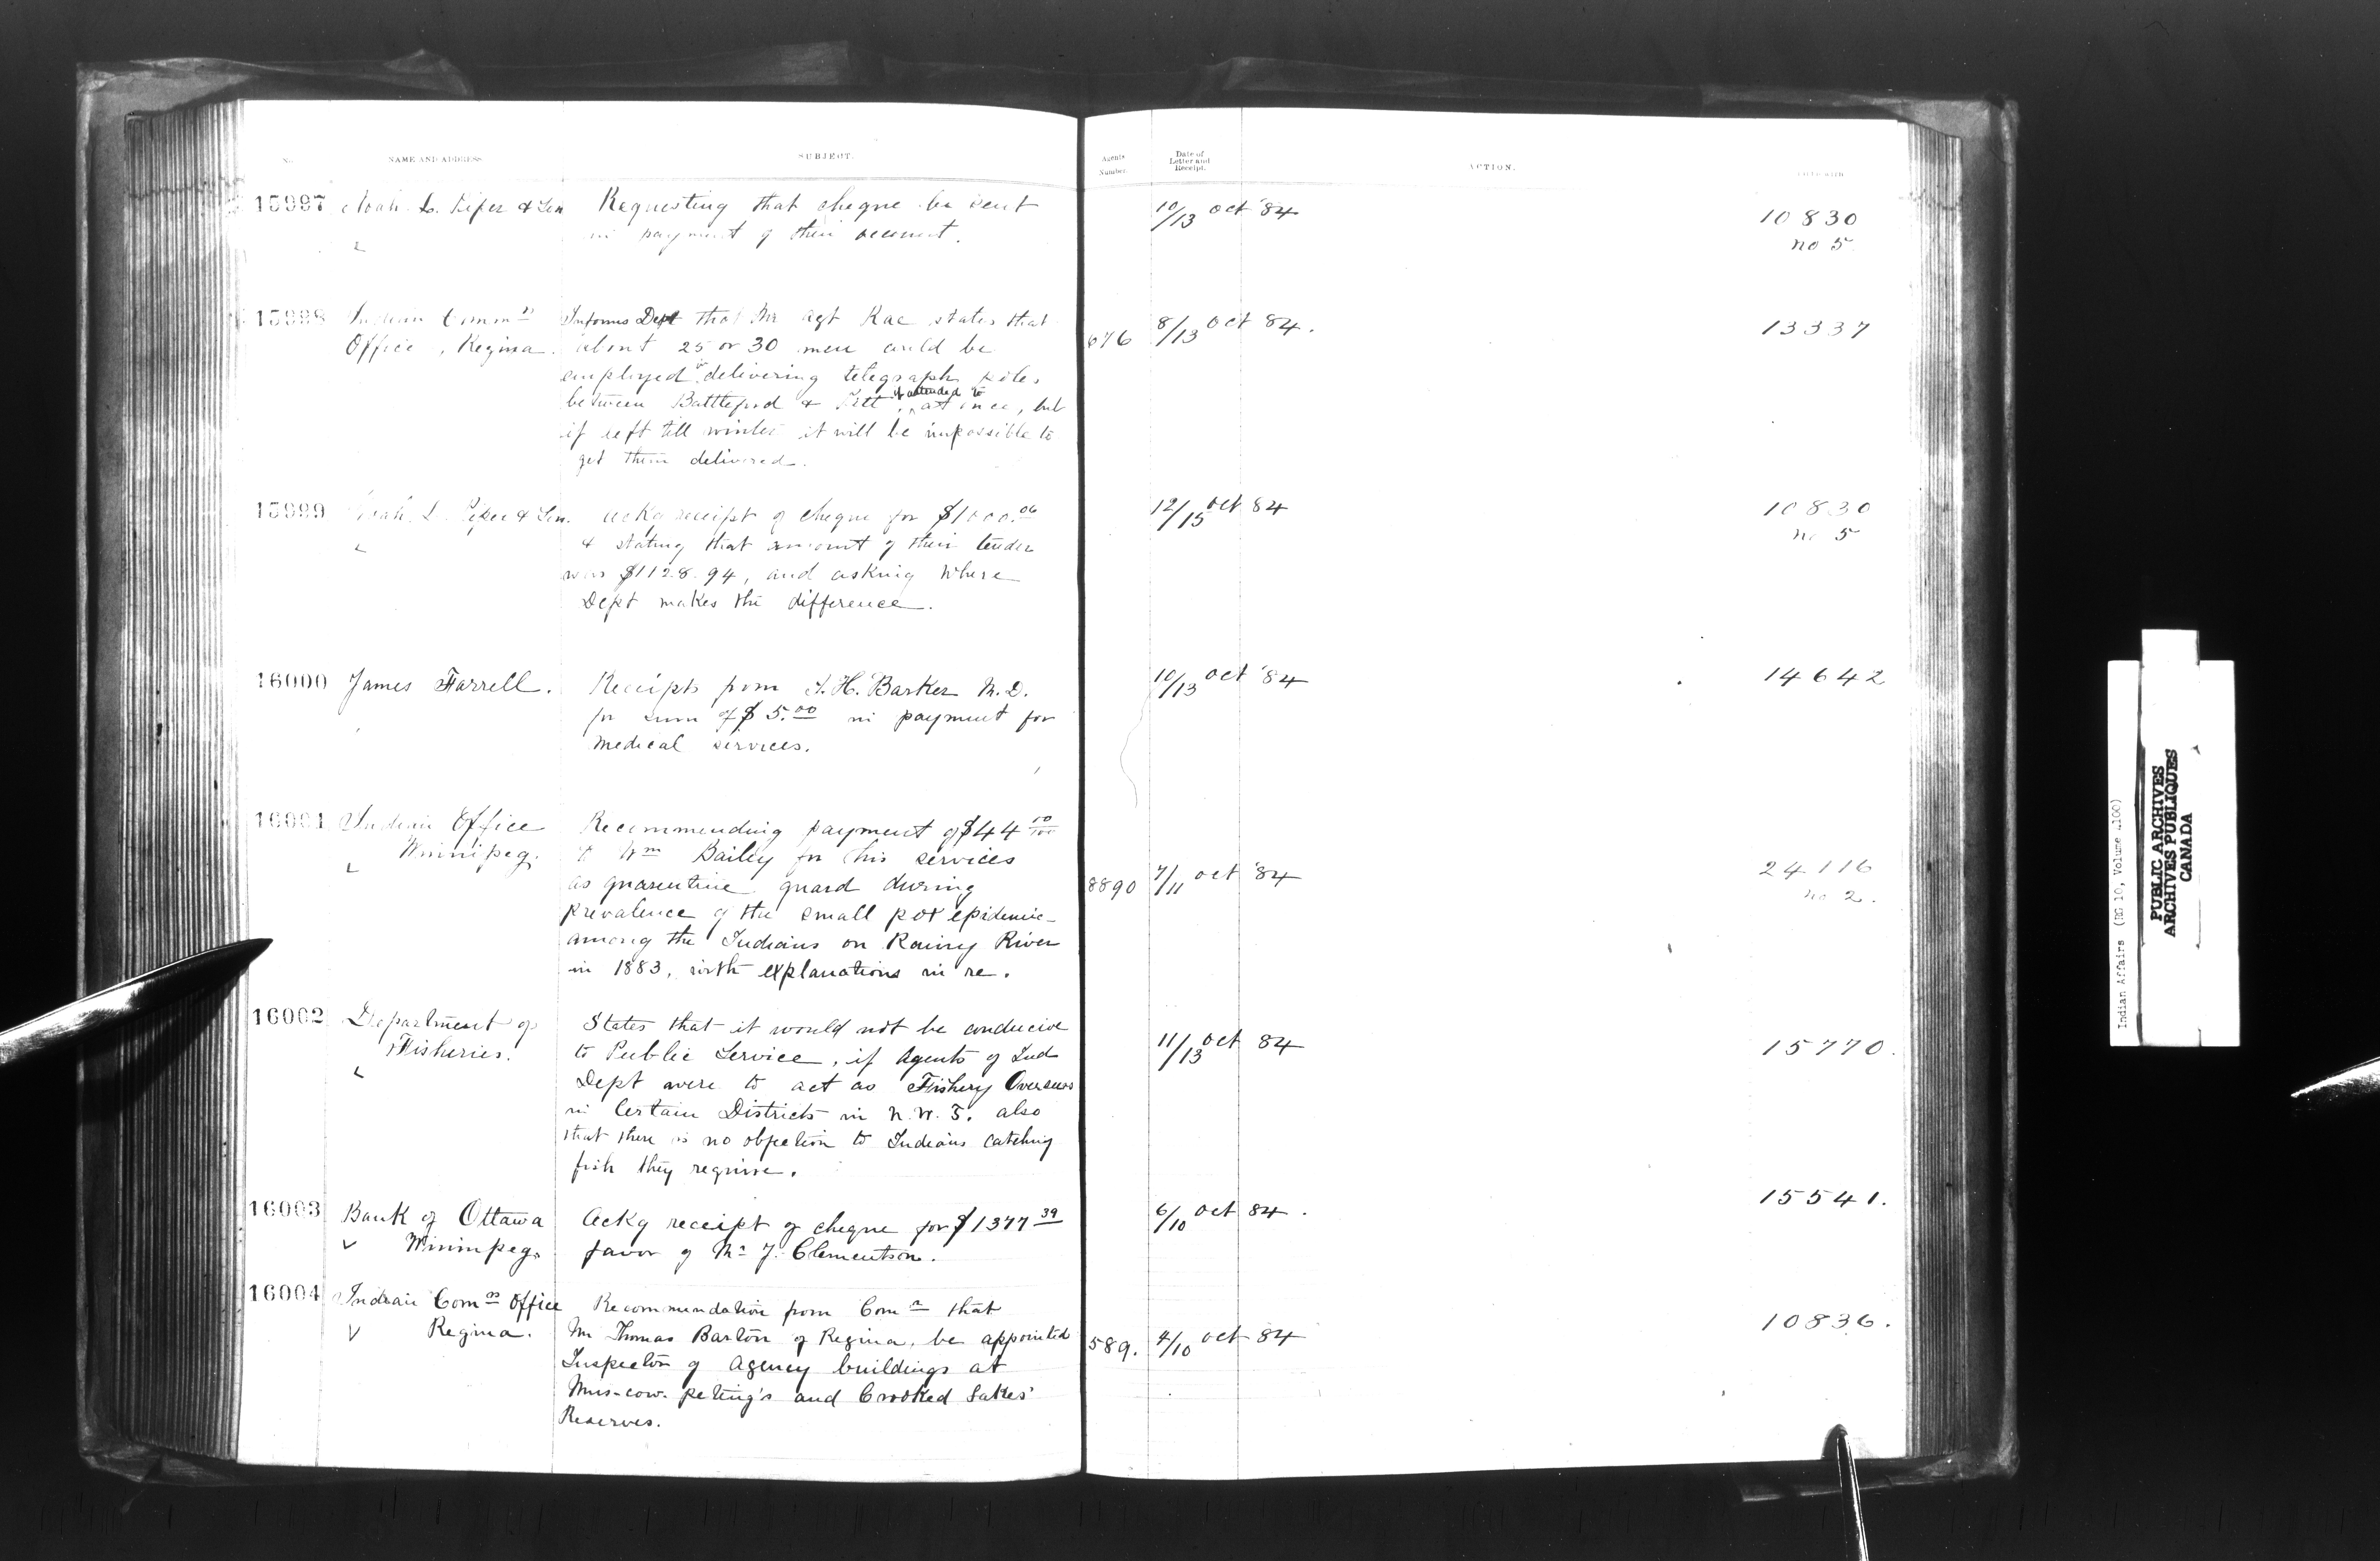 No. NAME AND ADDRESS SUBJECT. Agents Number. Date of Letter and Receipt. ACTION.
15997 Noah L. Piper & Son Requesting that cheque be sent 10/13 Oct '84 10830
in payment of their account. no 5
15998 Indian Commrs Informs Dept that Mr Agt Rae states that 676 8/13 Oct 84. 13337
Office, Regina. about 25 or 30 men could be
employed delivering telegraph poles
between Battleford & Pitt, if attended to at once, but
if left till winter it will be impossible to
get them delivered.
15999 Noah L. Piper & Son. Ackg receipt of cheque for $1000.06 12/15 Oct 84 10830
& stating that amount of their tender no 5
was $1128.94, and asking where
Dept makes the difference.
16000 James Farrell. Receipts from T. H. Barker M.D. 10/13 Oct '84 14642
for sum of $5.00 in payment for
medical services.
16001 Indian Office Recommending payment of $44 10/100
Winnipeg. to Wm Bailey for his services 24116
as quarentine guard during 8890 7/11 Oct '84 no 2.
prevalence of the small pox epidemic
among the Indians on Rainy River
in 1883, with explanations in re.
16002 Department of States that it would not be conducive 11/13 Oct 84 15770.
Fisheries. to Public Service, if Agents of Ind
Dept were to act as Fishery Overseers
in Certain Districts in N.W.T. also
that there is no objection to Indians catching
fish they require.
16003 Bank of Ottawa Ackg receipt of cheque for $1377 39 6/10 Oct 84. 15541.
Winnipeg. favor of Mr J. Clementson.
16004 Indian Comrs Office Recommendation from Comr that 10836.
Regina. Mr Thomas Barton of Regina, be appointed 589. 4/10 Oct 84
Inspector of Agency buildings at
Mus-cow-peting's and Crooked Lakes'
Reserves.
Indian Affairs (RG 10, Volume 4100)
PUBLIC ARCHIVES
ARCHIVES PUBLIQUES
CANADA